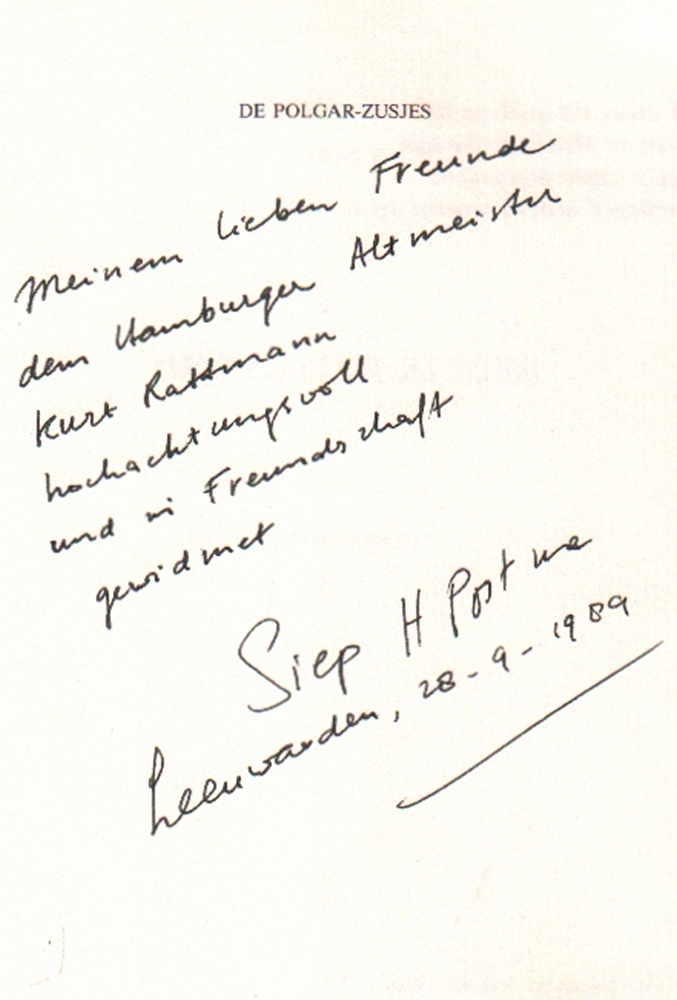 DE POLGAR-ZUSJES
Meinem lieben Freunde
dem Hamburger Altmeister
Kurt Rattmann
hochachtungsvoll
und in Freundschaft
gewidmet
Siep H Postma
Leeuwarden, 28-9-1989